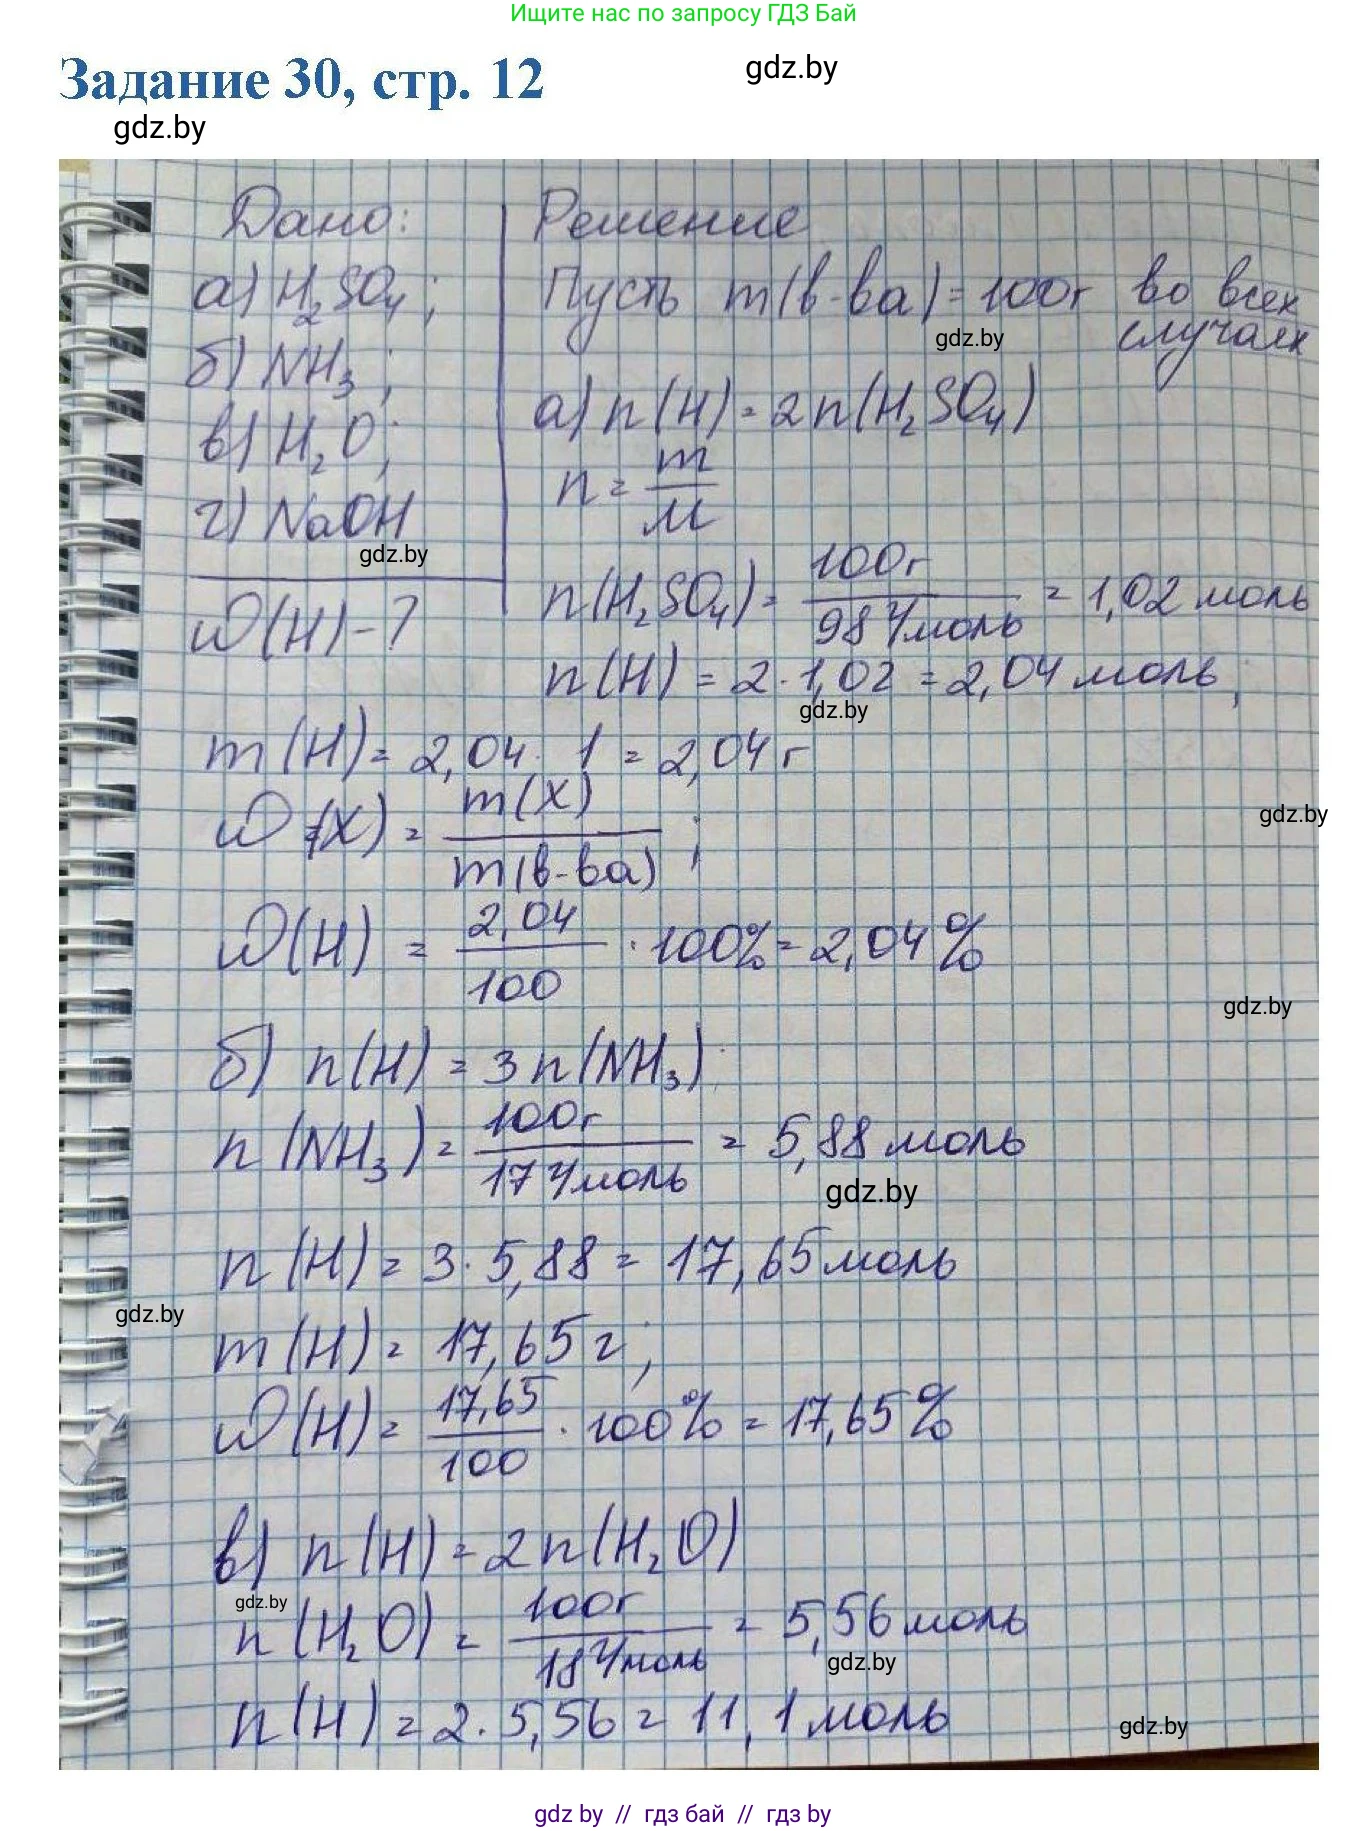 Ищите нас по запросу ГДЗ Бай
Задание 30, стр. 12
gdz.by
gdz.by
Дано:
а) H₂SO₄;
б) NH₃;
в) H₂O;
г) NaOH
gdz.by
ω(H)-?
Решение
Пусть m(в-ва)=100г во всех
случаях
gdz.by
а) n(H)=2n(H₂SO₄)
n = m/M
n(H₂SO₄) = 100г / 98 г/моль = 1,02 моль
n(H) = 2·1,02 = 2,04 моль;
gdz.by
m(H) = 2,04 · 1 = 2,04 г
ω(X) = m(X) / m(в-ва);
gdz.by
ω(H) = 2,04/100 · 100% = 2,04%
gdz.by
б) n(H) = 3n(NH₃);
n(NH₃) = 100г / 17 г/моль = 5,88 моль
gdz.by
n(H) = 3·5,88 = 17,65 моль
gdz.by
m(H) = 17,65 г;
ω(H) = 17,65/100 · 100% = 17,65%
в) n(H) = 2n(H₂O)
gdz.by
n(H₂O) = 100г / 18 г/моль = 5,56 моль
gdz.by
n(H) = 2·5,56 = 11,1 моль
gdz.by
gdz by // гдз бай // gdz by